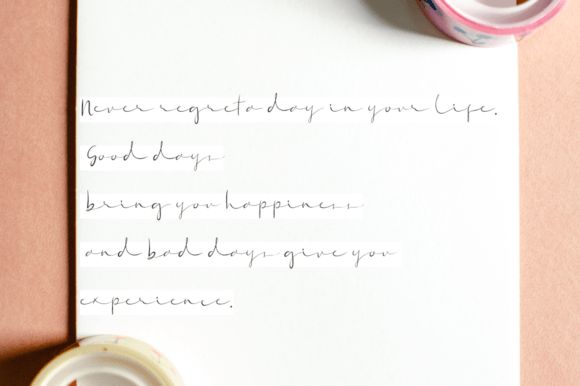 Never regret a day in your life.
Good days
bring you happiness
and bad days give you
experience.